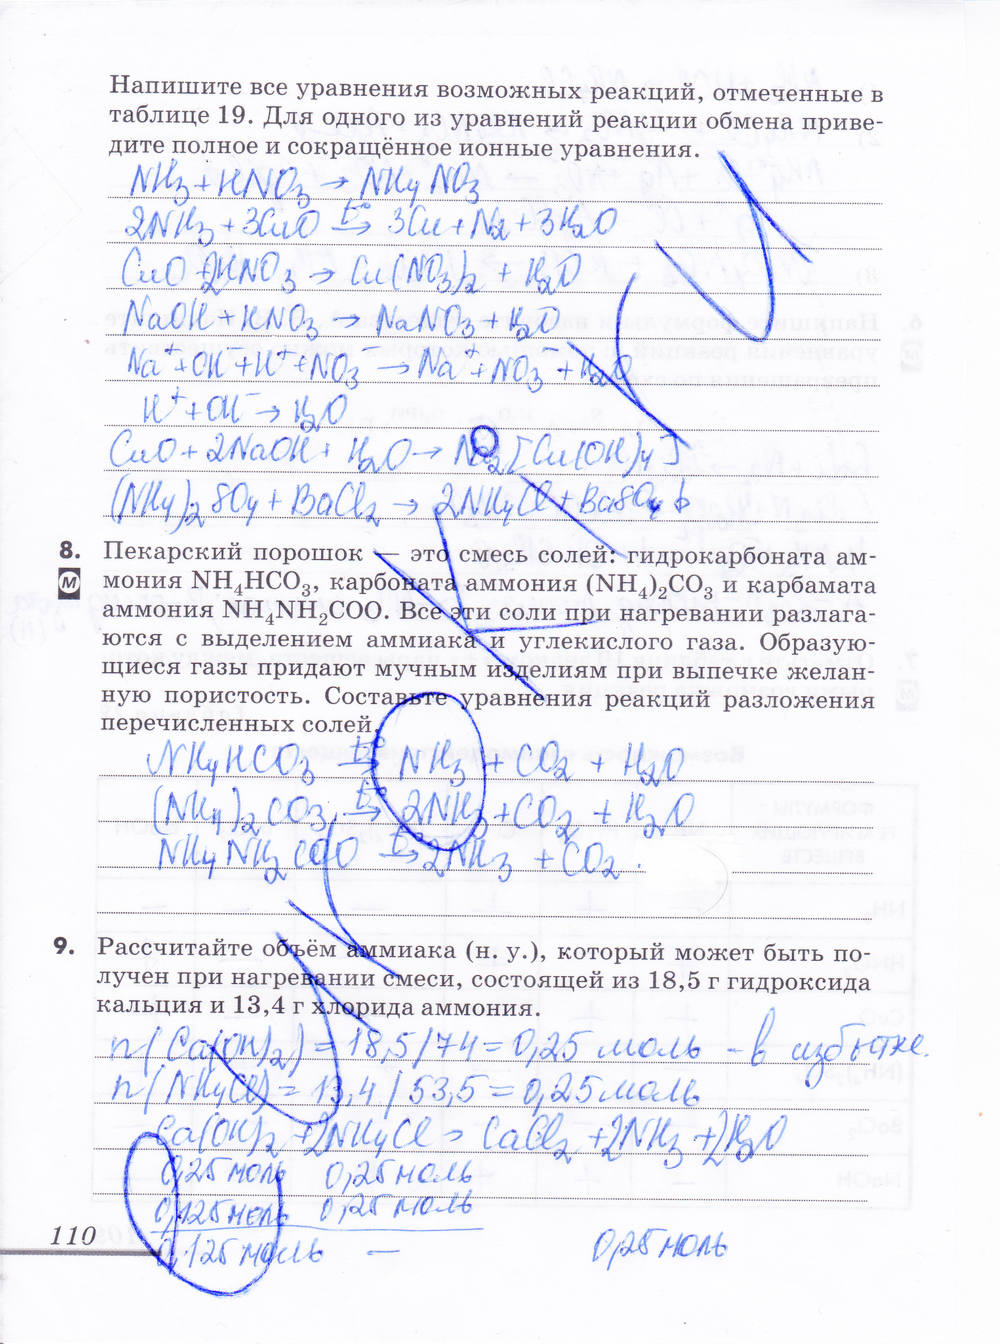 Напишите все уравнения возможных реакций, отмеченные в
таблице 19. Для одного из уравнений реакции обмена приве-
дите полное и сокращённое ионные уравнения.
NH₃ + HNO₃ → NH₄NO₃
2NH₃ + 3CuO t°→ 3Cu + N₂ + 3H₂O
CuO + 2HNO₃ → Cu(NO₃)₂ + H₂O
NaOH + HNO₃ → NaNO₃ + H₂O
Na⁺ + OH⁻ + H⁺ + NO₃⁻ → Na⁺ + NO₃⁻ + H₂O
H⁺ + OH⁻ → H₂O
CuO + 2NaOH + H₂O → Na₂[Cu(OH)₄]
(NH₄)₂SO₄ + BaCl₂ → 2NH₄Cl + BaSO₄↓
8. Пекарский порошок — это смесь солей: гидрокарбоната ам-
М мония NH₄HCO₃, карбоната аммония (NH₄)₂CO₃ и карбамата
аммония NH₄NH₂COO. Все эти соли при нагревании разлага-
ются с выделением аммиака и углекислого газа. Образую-
щиеся газы придают мучным изделиям при выпечке желан-
ную пористость. Составьте уравнения реакций разложения
перечисленных солей.
NH₄HCO₃ t°→ NH₃ + CO₂ + H₂O
(NH₄)₂CO₃ t°→ 2NH₃ + CO₂ + H₂O
NH₄NH₂COO t°→ 2NH₃ + CO₂.
9. Рассчитайте объём аммиака (н. у.), который может быть по-
лучен при нагревании смеси, состоящей из 18,5 г гидроксида
кальция и 13,4 г хлорида аммония.
n(Ca(OH)₂) = 18,5/74 = 0,25 моль - в избытке.
n(NH₄Cl) = 13,4/53,5 = 0,25 моль
Ca(OH)₂ + 2NH₄Cl → CaCl₂ + 2NH₃ + 2H₂O
0,25 моль 0,25 моль
0,125 моль 0,25 моль
0,125 моль — 0,25 моль
110